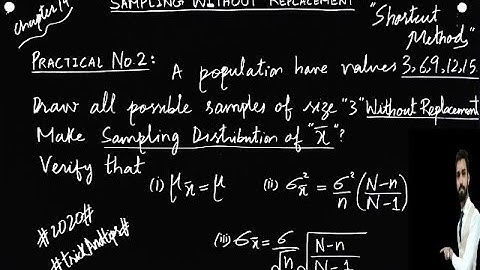 Chapter 14
SAMPLING WITHOUT REPLACEMENT
"Shortcut Methods"
PRACTICAL NO.2:
A population have values 3,6,9,12,15.
Draw all possible samples of size "3" Without Replacement
Make Sampling Distribution of "x̄"?
Verify that
(i) μx̄ = μ (ii) σ²x̄ = σ²/n (N-n/N-1)
#2020#
#trickAndtips#
(iii) σx̄ = σ/√n √N-n/N-1